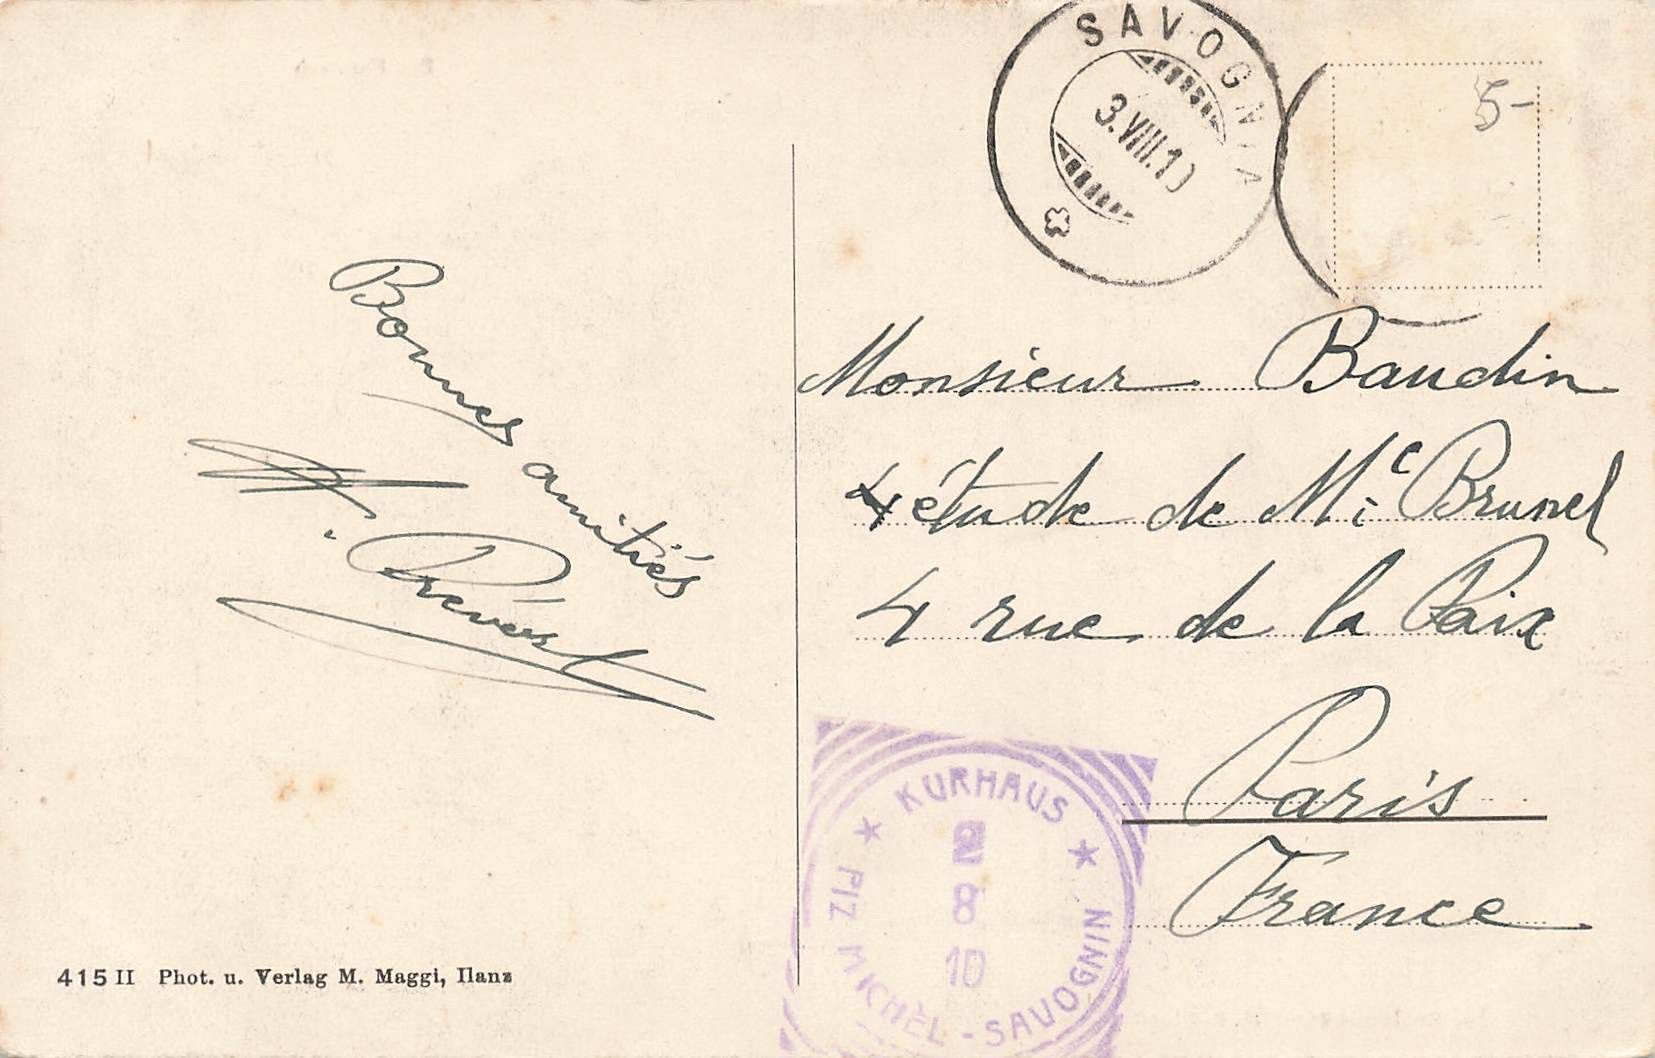 SAVOGNIN
3.VIII.10
5-
Bonnes amitiés
A. Prévost
Monsieur Baudin
4 étude de Me Brunel
4 rue de la Paix
Paris
France
★ KURHAUS ★
2
8
10
PIZ MICHÈL - SAVOGNIN
415 II Phot. u. Verlag M. Maggi, Ilanz